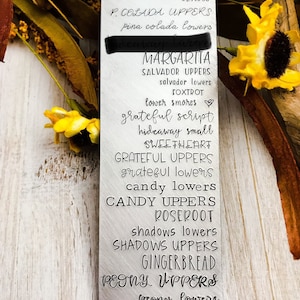 P. COLADA UPPERS
pina colada lowers
MARGARITA
SALVADOR UPPERS
salvador lowers
FOXTROT
lowsh smokes
grateful script
hideaway small
SWEETHEART
GRATEFUL UPPERS
grateful lowers
candy lowers
CANDY UPPERS
ROSEROOT
shadows lowers
SHADOWS UPPERS
GINGERBREAD
PEONY UPPERS
peony lowers